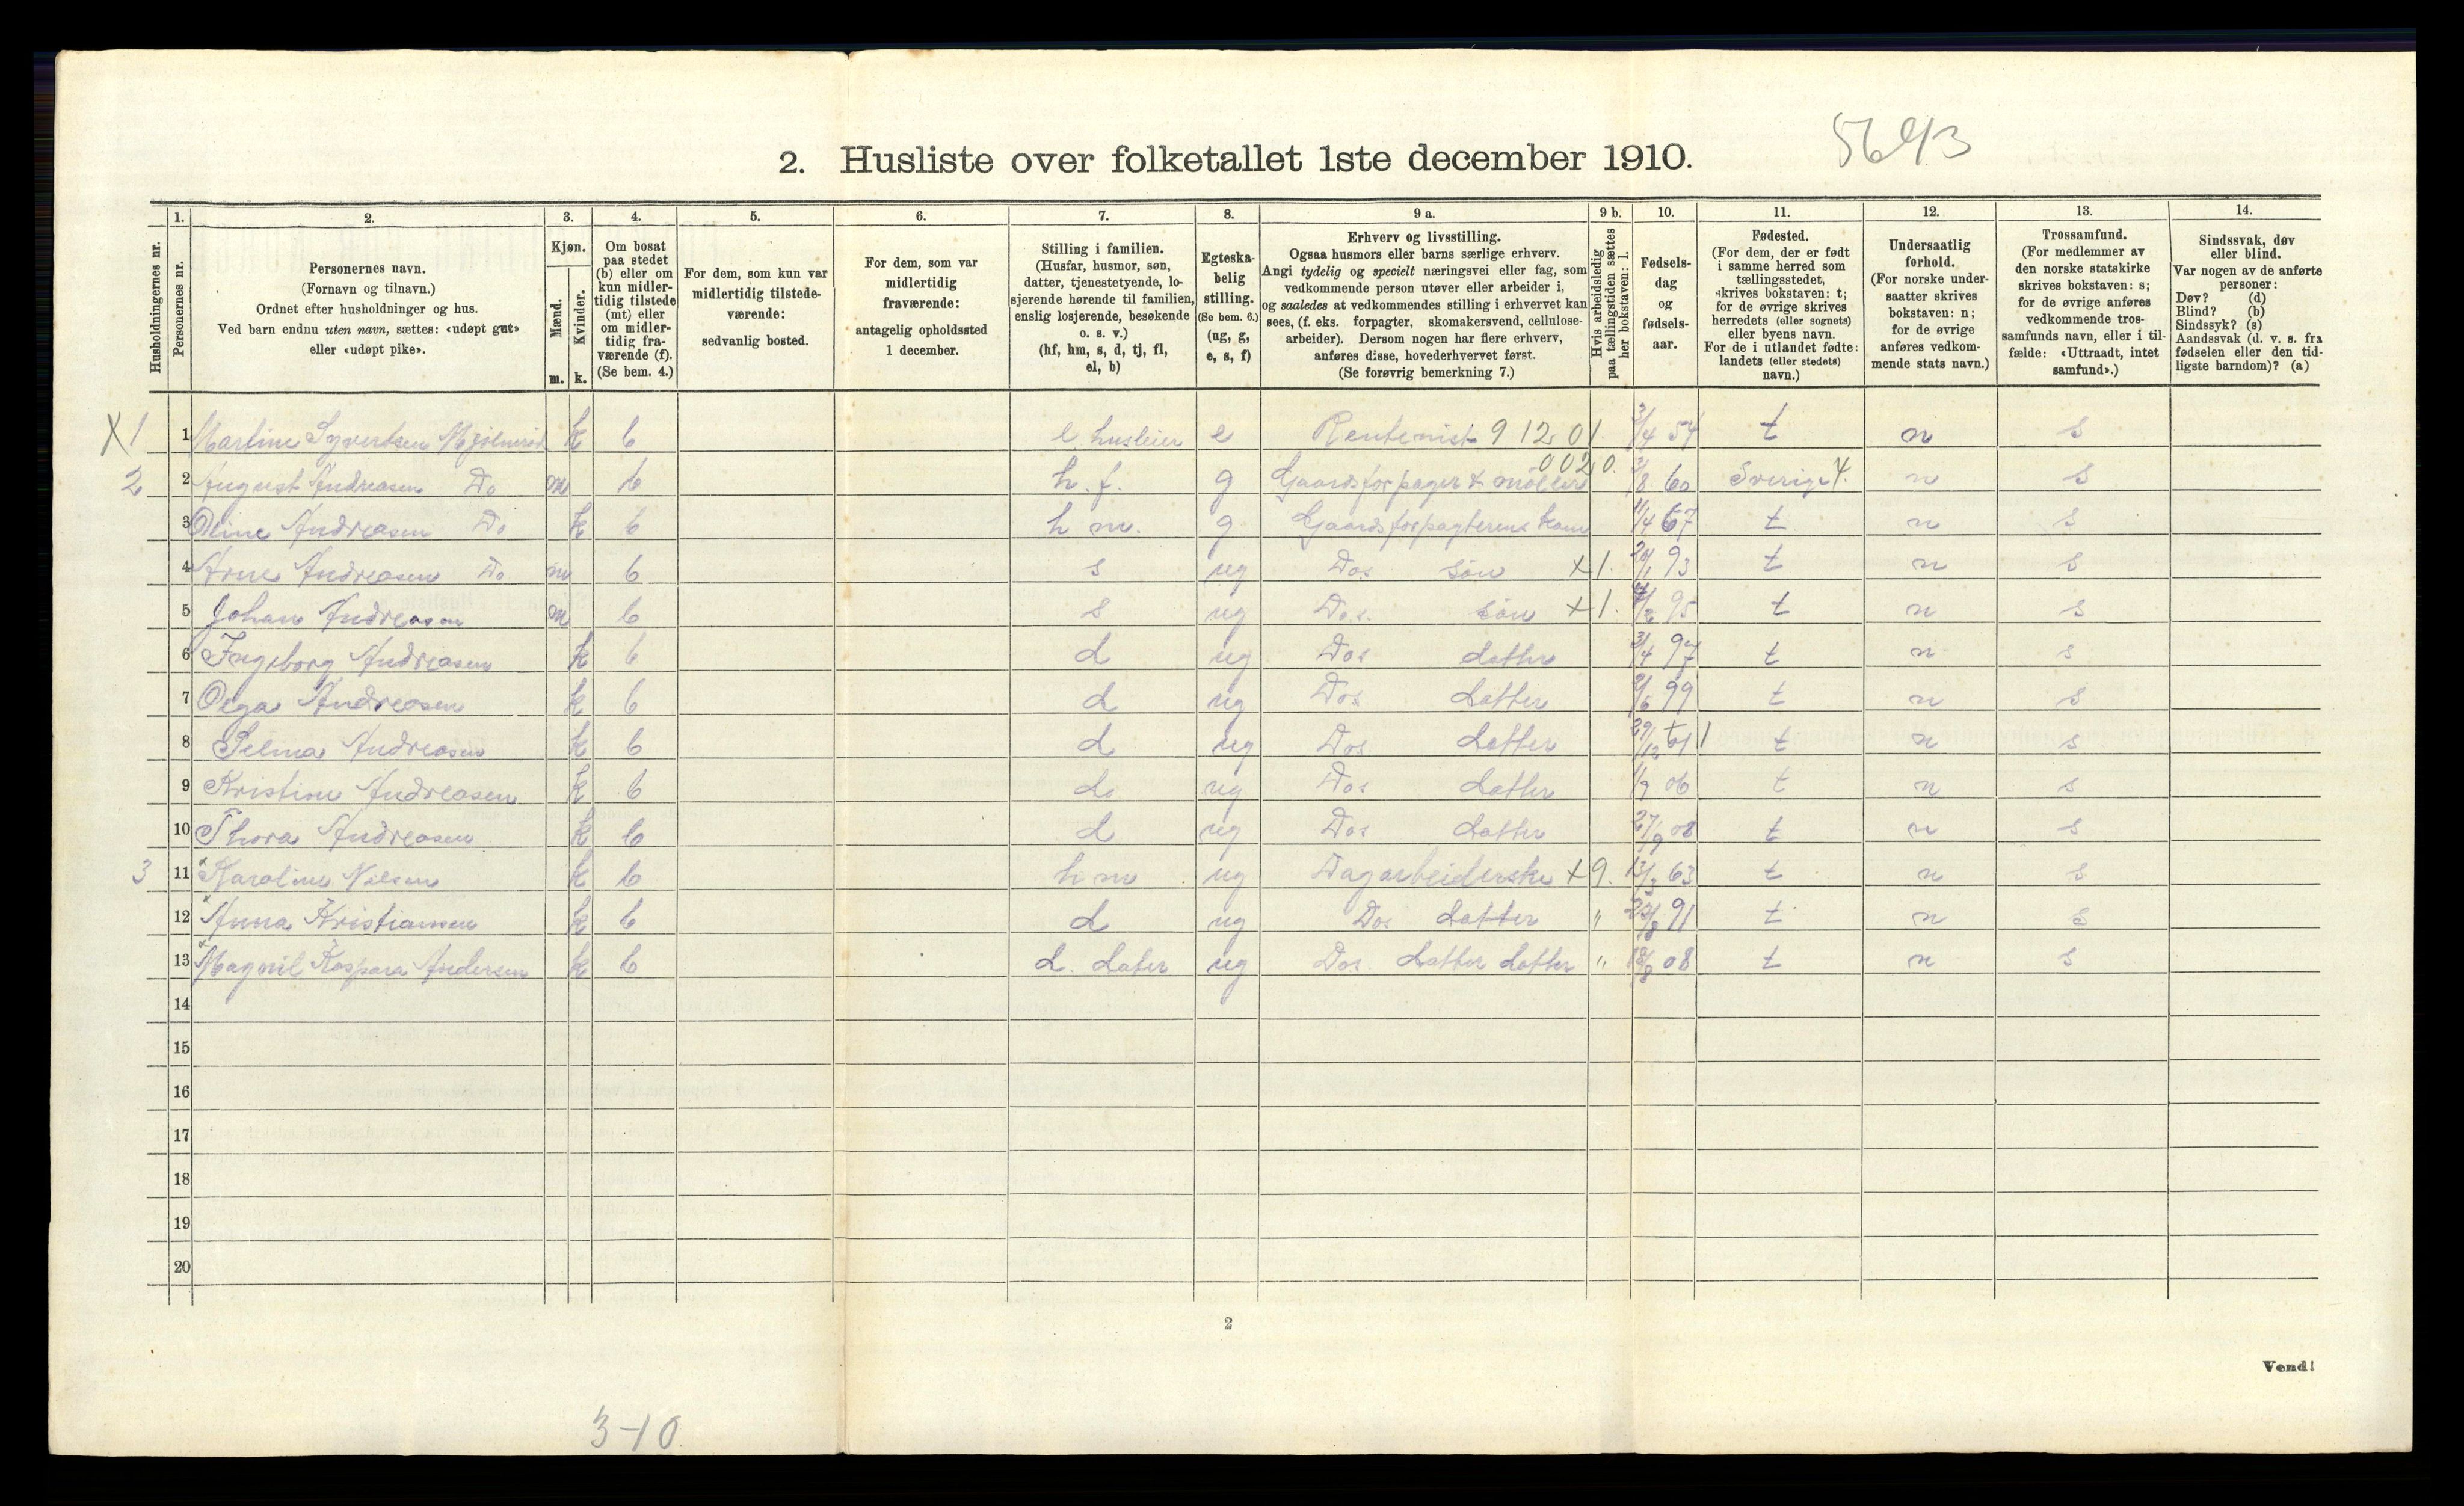 5643
2. Husliste over folketallet 1ste december 1910.
Husholdningernes nr.
1. Personernes nr.
2. Personernes navn.
(Fornavn og tilnavn.)
Ordnet efter husholdninger og hus.
Ved barn endnu uten navn, sættes: «udøpt gut»
eller «udøpt pike».
3. Kjøn.
Mænd. m.
Kvinder. k.
4. Om bosat
paa stedet
(b) eller om
kun midler-
tidig tilstede
(mt) eller
om midler-
tidig fra-
værende (f).
(Se bem. 4.)
5. For dem, som kun var
midlertidig tilstede-
værende:
sedvanlig bosted.
6. For dem, som var
midlertidig
fraværende:
antagelig opholdssted
1 december.
7. Stilling i familien.
(Husfar, husmor, søn,
datter, tjenestetyende, lo-
sjerende hørende til familien,
enslig losjerende, besøkende
o. s. v.)
(hf, hm, s, d, tj, fl,
el, b)
8. Egteska-
belig
stilling.
(Se bem. 6.)
(ug, g,
e, s, f)
9 a. Erhverv og livsstilling.
Ogsaa husmors eller barns særlige erhverv.
Angi tydelig og specielt næringsvei eller fag, som
vedkommende person utøver eller arbeider i,
og saaledes at vedkommendes stilling i erhvervet kan
sees, (f. eks. forpagter, skomakersvend, cellulose-
arbeider). Dersom nogen har flere erhverv,
anføres disse, hovederhvervet først.
(Se forøvrig bemerkning 7.)
9 b. Hvis arbeidsledig
paa tællingstiden sættes
her bokstaven: l.
10. Fødsels-
dag
og
fødsels-
aar.
11. Fødested.
(For dem, der er født
i samme herred som
tællingsstedet,
skrives bokstaven: t;
for de øvrige skrives
herredets (eller sognets)
eller byens navn.
For de i utlandet fødte:
landets (eller stedets)
navn.)
12. Undersaatlig
forhold.
(For norske under-
saatter skrives
bokstaven: n;
for de øvrige
anføres vedkom-
mende stats navn.)
13. Trossamfund.
(For medlemmer av
den norske statskirke
skrives bokstaven: s;
for de øvrige anføres
vedkommende tros-
samfunds navn, eller i til-
fælde: «Uttraadt, intet
samfund».)
14. Sindssvak, døv
eller blind.
Var nogen av de anførte
personer:
Døv? (d)
Blind? (b)
Sindssyk? (s)
Aandssvak (d. v. s. fra
fødselen eller den tid-
ligste barndom)? (a)
X1 1 Martine Syvertsen k b e husleier e Rentenist 9 12 01. 3/4 54 t n s
2 2 August Andreasen Do m b h. f. g Gaardsforpager & møller 002 0. 60 Sverige 4. n s
3 Oline Andreasen Do k b h m. g Gaardsforpagterens kone 11/4 67 t n s
4 Arne Andreasen Do m b s ug Dos søn x1. 93 t n s
5 Johan Andreasen m b s ug Dos. søn x1. 95 t n s
6 Ingeborg Andreasen k b d ug Dos datter 3/4 97 t n s
7 Olga Andreasen k b d ug Dos datter 99 t n s
8 Selma Andreasen k b d ug Dos datter 29/12 01 t n s
9 Kristine Andreasen k b d. ug Dos datter 06 t n s
10 Thora Andreasen k b d ug Dos datter 27/9 08 t n s
3 11 x Karoline Nilsen k b h m ug Dagarbeiderske x9. 13/3 63 t n s
12 x Anna Kristiansen k b d ug Dos datter " 91 t n s
13 x Magnil Kaspara Andersen k b d. dater ug Dos. datter datter " 08 t n s
14
15
16
17
18
19
20
2
Vend!
3-10